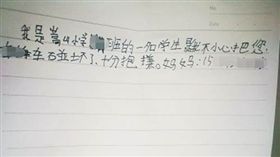 我是嵩山小学班的一名学生我不小心把您
车碰坏了、十分抱歉。妈妈:15